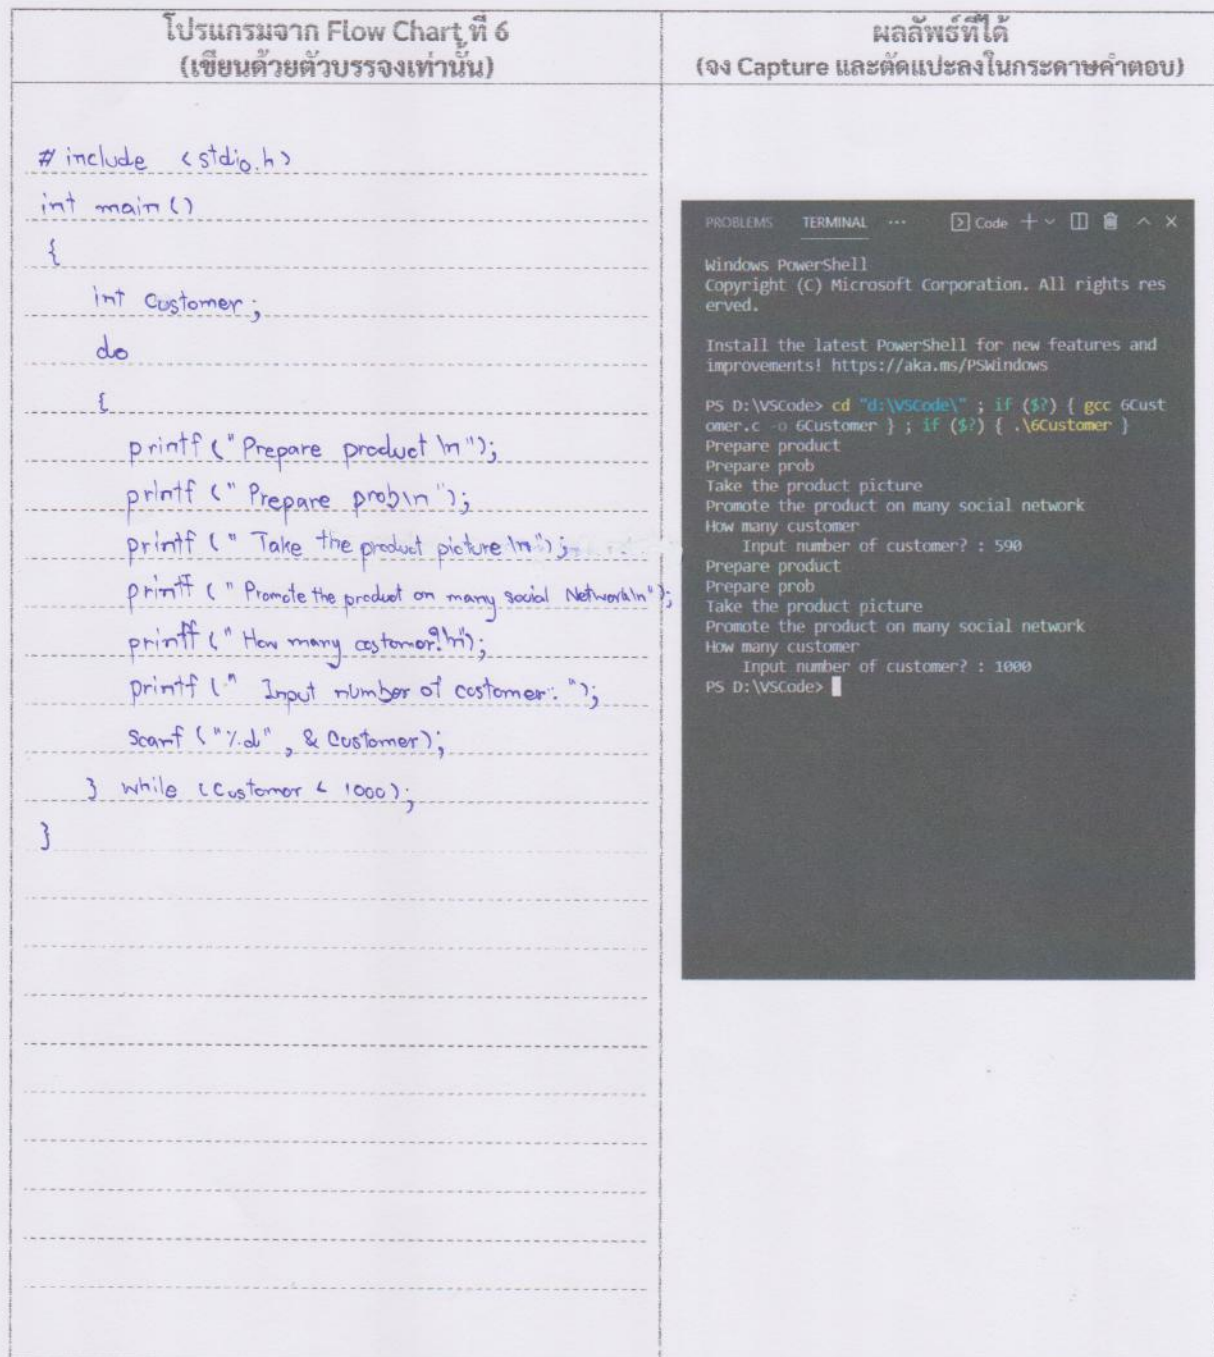 โปรแกรมจาก Flow Chart ที่ 6
(เขียนด้วยตัวบรรจงเท่านั้น)
# include <stdio.h>
int main ()
{
int Customer ;
do
{
printf ("Prepare product \n");
printf (" Prepare prob\n ");
printf (" Take the product picture \n");
printf (" Promote the product on many social Network\n");
printf (" How many costomor?\n");
printf (" Input number of costomer: ");
Scanf ("%d" , & Customer);
} while (Customor < 1000);
}
ผลลัพธ์ที่ได้
(จง Capture และตัดแปะลงในกระดาษคำตอบ)
PROBLEMS TERMINAL ... Code
Windows PowerShell
Copyright (C) Microsoft Corporation. All rights res
erved.
Install the latest PowerShell for new features and
improvements! https://aka.ms/PSWindows
PS D:\VSCode> cd "d:\VSCode\" ; if ($?) { gcc 6Cust
omer.c -o 6Customer } ; if ($?) { .\6Customer }
Prepare product
Prepare prob
Take the product picture
Promote the product on many social network
How many customer
Input number of customer? : 590
Prepare product
Prepare prob
Take the product picture
Promote the product on many social network
How many customer
Input number of customer? : 1000
PS D:\VSCode>